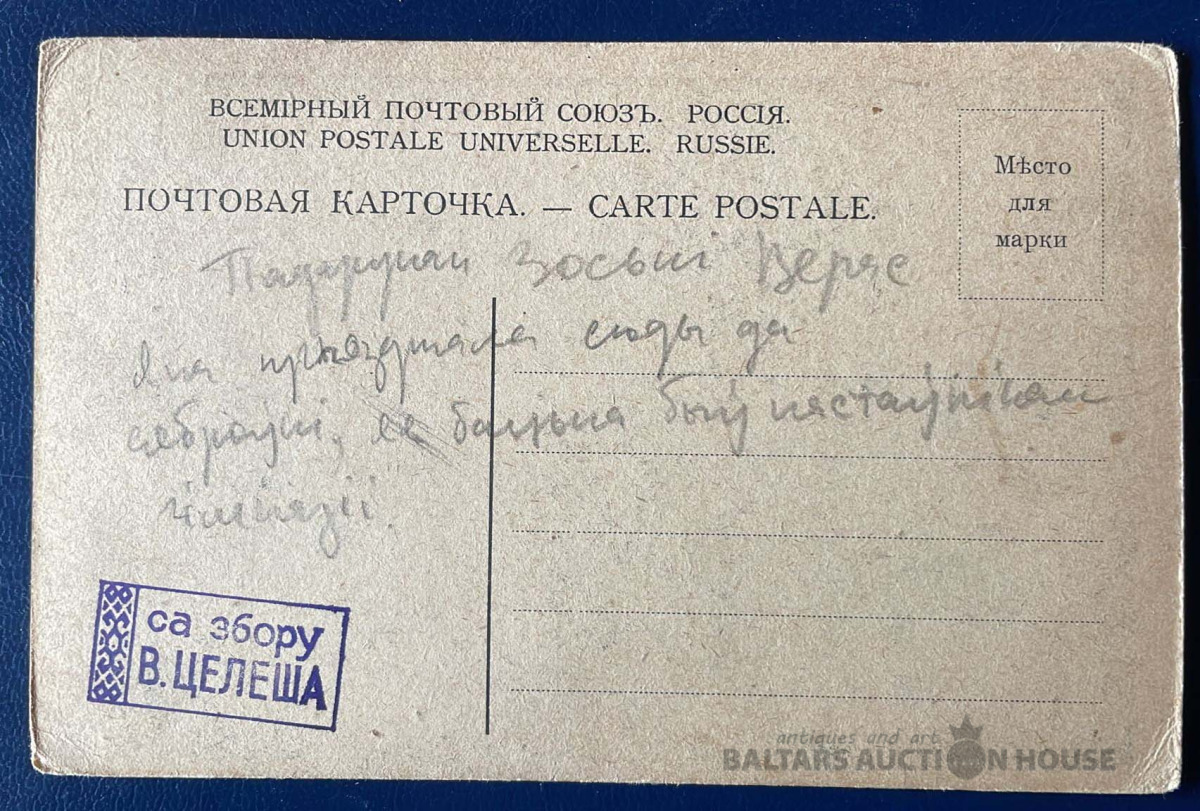 ВСЕМІРНЫЙ ПОЧТОВЫЙ СОЮЗЪ. РОССІЯ.
UNION POSTALE UNIVERSELLE. RUSSIE.
ПОЧТОВАЯ КАРТОЧКА. — CARTE POSTALE.
Мѣсто
для
марки
Зоський Верас
Яна прыязджала сюды да
сяброўкі, бацька быў настаўнікам
гімназіі.
са збору
В. ЦЕЛЕША
antiques and art
BALTARS AUCTION HOUSE